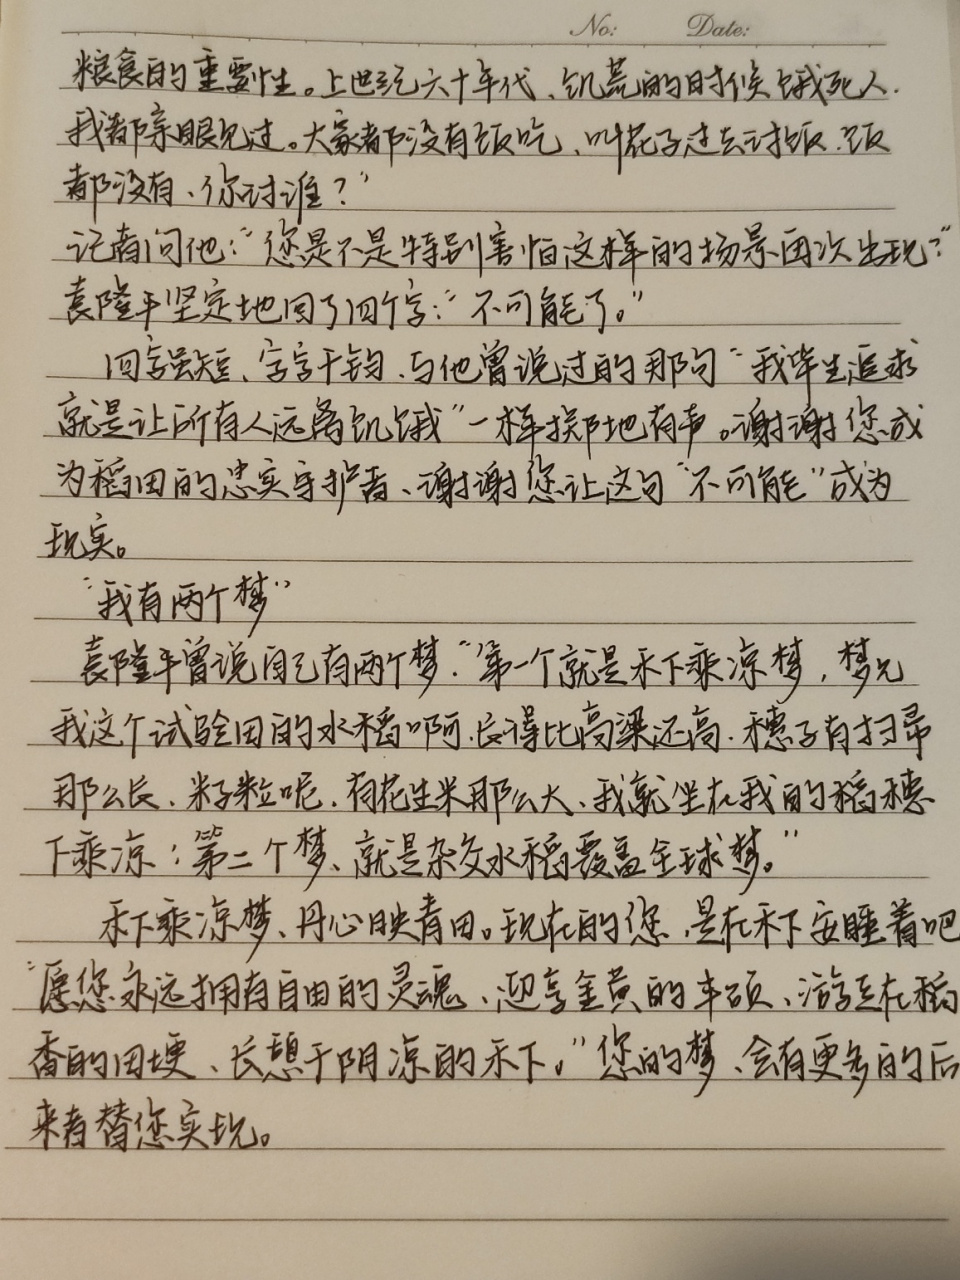 No: Date:
粮食的重要性。上世纪六十年代、饥荒的时候饿死人.
我都亲眼见过。大家都没有饭吃、叫花子过去讨饭、饭
都没有、你讨谁？”
记者问他：“您是不是特别害怕这样的场景再次出现？”
袁隆平坚定地回了四个字：“不可能了。”
四字虽短、字字千钧、与他曾说过的那句“我毕生追求
就是让所有人远离饥饿”一样掷地有声。谢谢您成
为稻田的忠实守护者、谢谢您让这句“不可能”成为
现实。
“我有两个梦”
袁隆平曾说自己有两个梫：“第一个就是禾下乘凉梦，梦见
我这个试验田的水稻啊、长得比高粱还高、穗子有扫帚
那么长、籽粒呢、有花生米那么大、我就坐在我的稻穗
下乘凉；第二个梦、就是杂交水稻覆盖全球梦。”
禾下乘凉梦、丹心映青田。现在的您、是在禾下安睡着吧
“愿您永远拥有自由的灵魂、迎享金黄的丰硕、游弋在稻
香的田埂、长憩于阴凉的禾下。”您的梦、会有更多的后
来者替您实现。